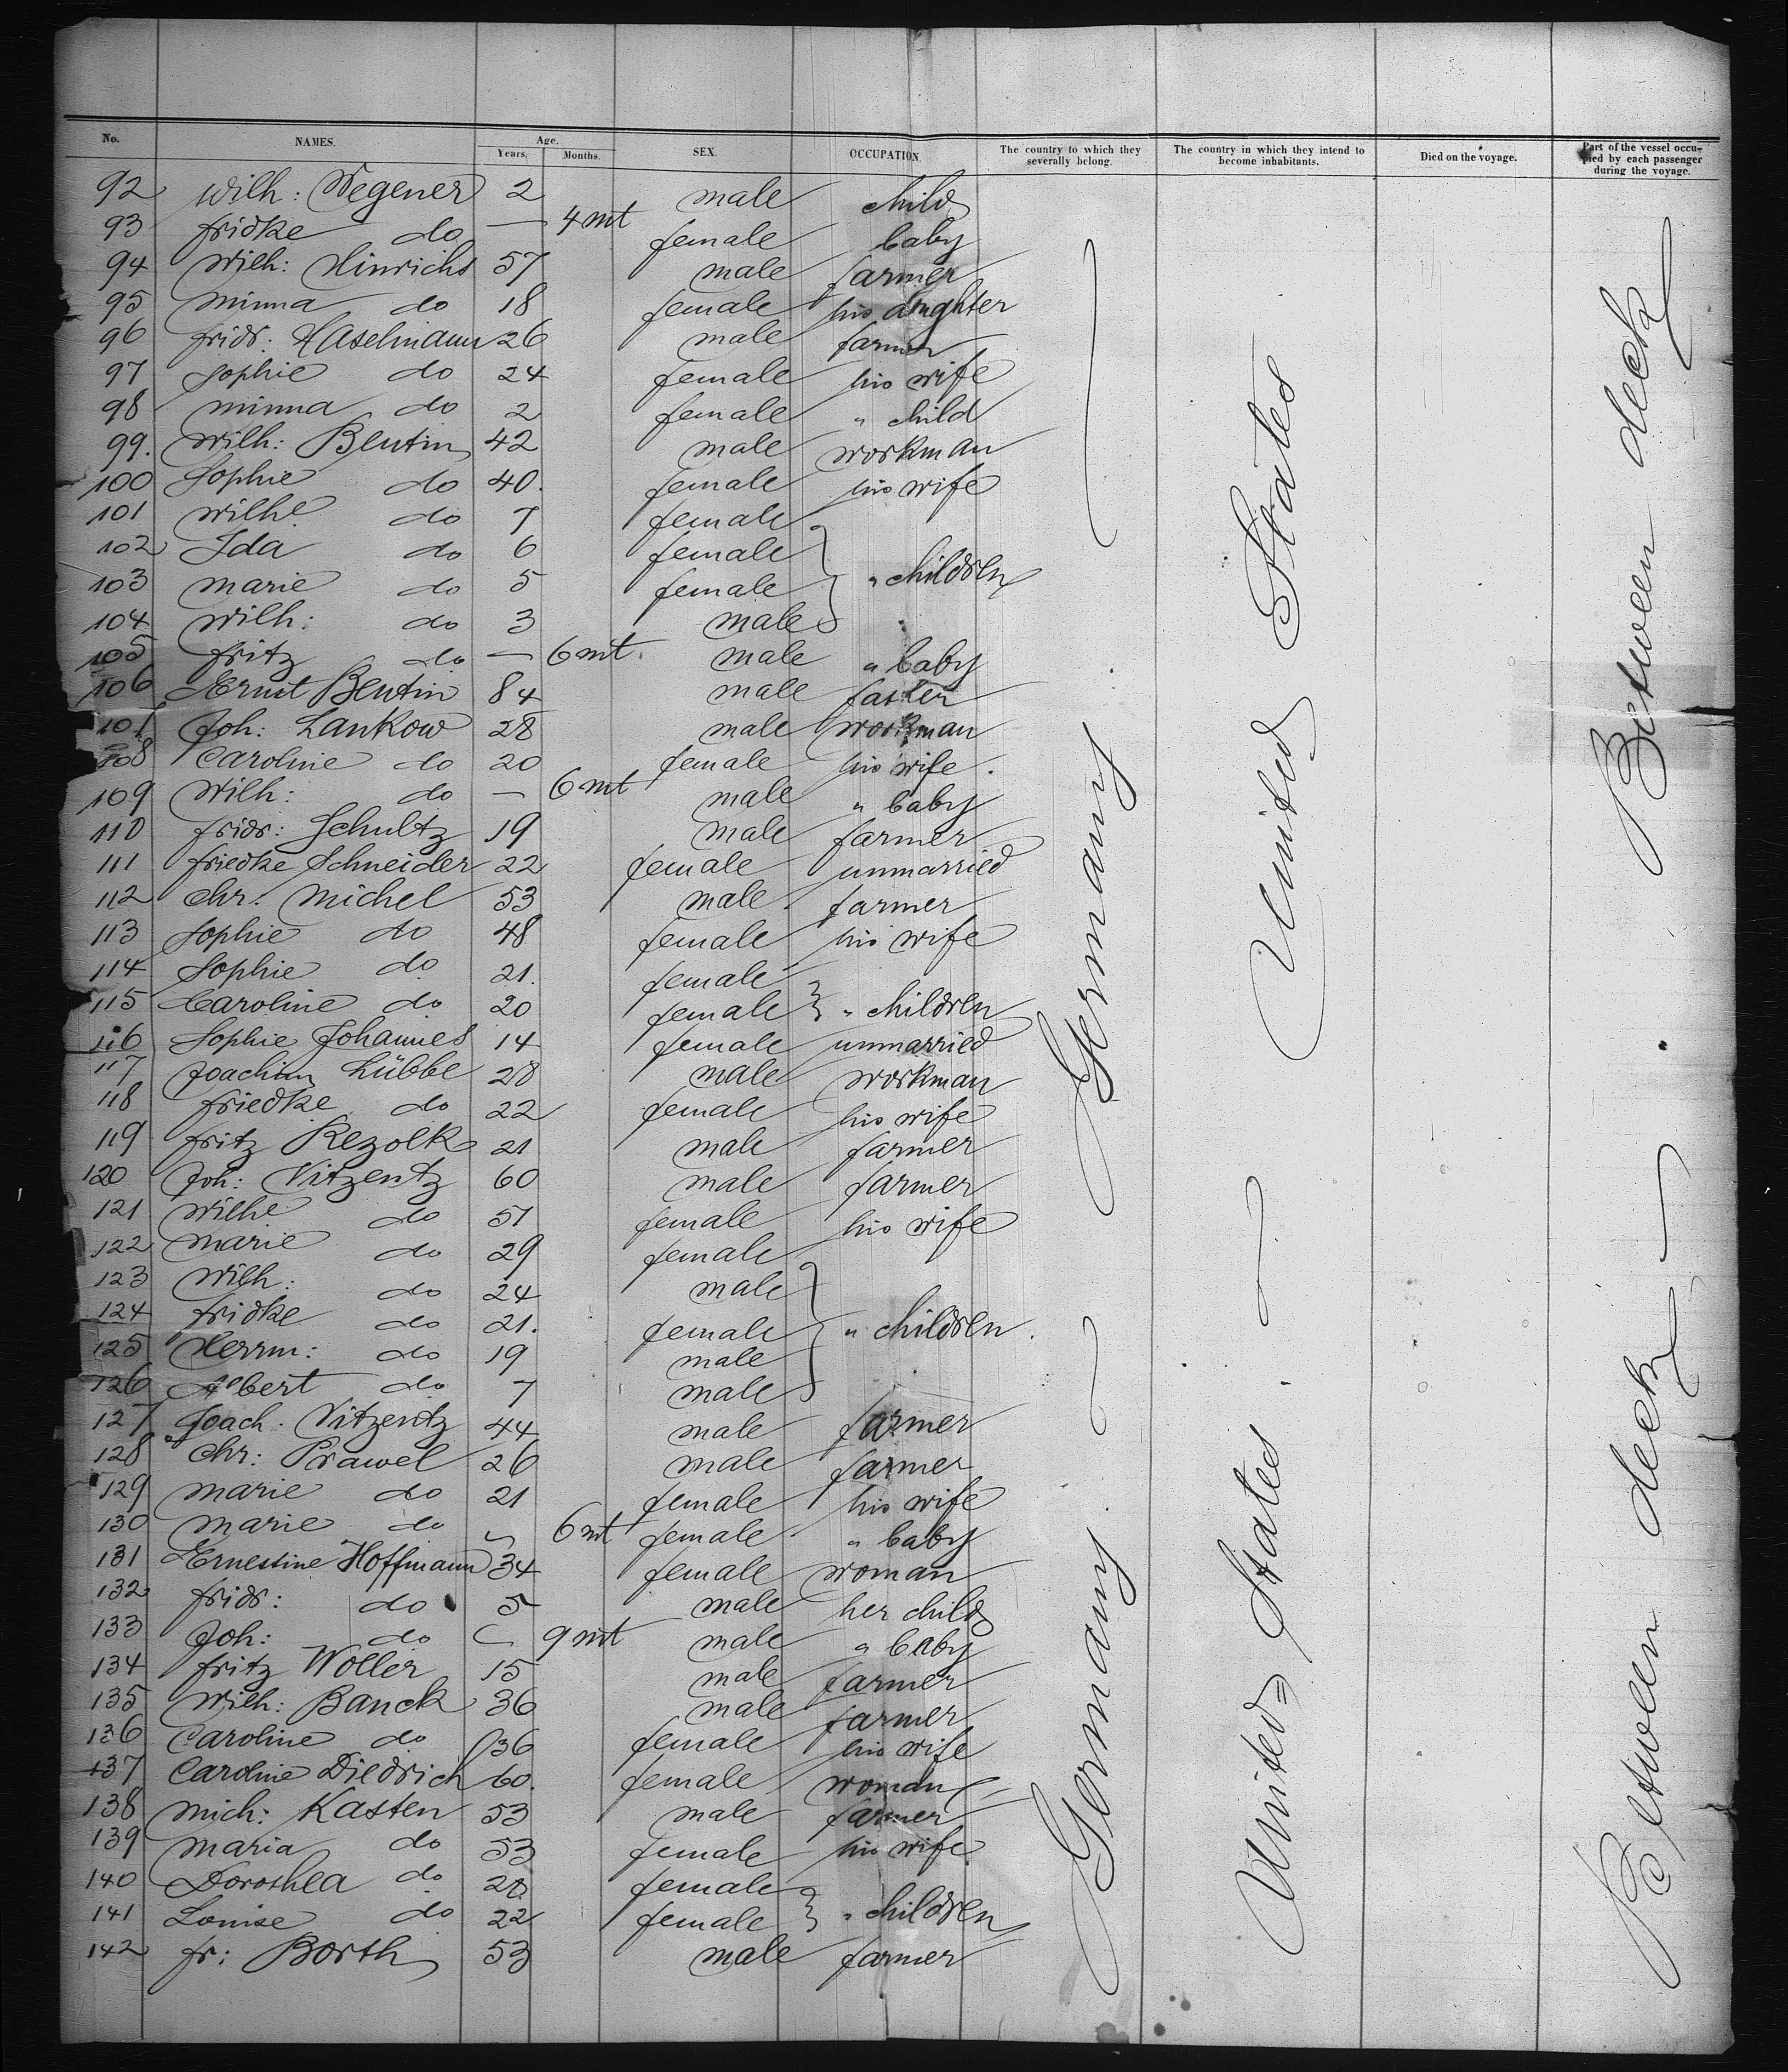 No. NAMES. Age. Years. Months. SEX. OCCUPATION. The country to which they severally belong. The country in which they intend to become inhabitants. Died on the voyage. Part of the vessel occupied by each passenger during the voyage.
92 Wilh: Wegener 2 male child
93 fridke do — 4 mt female baby
94 Wilh: Hinrichs 57 male farmer
95 minna do 18 female his daughter
96 fridr: Haselmann 26 male farmer
97 Sophie do 24 female his wife
98 minna do 2 female " child
99. Wilh: Bentin 42 male workman
100 Sophie do 40. female his wife
101 Wilhe do 7 female
102 Ida do 6 female
103 marie do 5 female " children
104 Wilh: do 3 male
105 fritz do — 6 mt. male " baby
106 Ernst Bentin 84 male father
107 Joh: Lankow 28 male workman
108 Caroline do 20 female his wife.
109 Wilh: do — 6 mt male " baby
110 fridr: Schultz 19 male farmer
111 friedke Schneider 22 female unmarried
112 Chr: Michel 53 male farmer
113 Sophie do 48 female his wife
114 Sophie do 21. female
115 Caroline do 20 female " children
116 Sophie Johannes 14 female unmarried
117 Joachim Lübbe 28 male workman
118 friedke do 22 female his wife
119 fritz Rezolk 21 male farmer
120 Joh: Vitzentz 60 male farmer
121 Wilhe do 57 female his wife
122 marie do 29 female
123 Wilh: do 24 male
124 fridke do 21. female " children.
125 Herrm: do 19 male
126 Albert do 7 male
127 Joach. Vitzentz 44 male farmer
128 Chr: Prawel 26 male farmer
129 marie do 21 female his wife
130 marie do — 6 mt female " baby
131 Ernestine Hoffmann 34 female woman
132 fridr: do 5 male her child
133 Joh: do — 9 mt male " baby
134 fritz Woller 15 male farmer
135 Wilh: Banck 36 male farmer
136 Caroline do 36 female his wife
137 Caroline Diedrich 60. female woman
138 mich: Kasten 53 male farmer
139 maria do 53 female his wife
140 Dorothea do female
141 Louise do 22 female " children
142 fr: Borth 53 male farmer
Germany
Germany
United States
United States
Between deck
Between deck